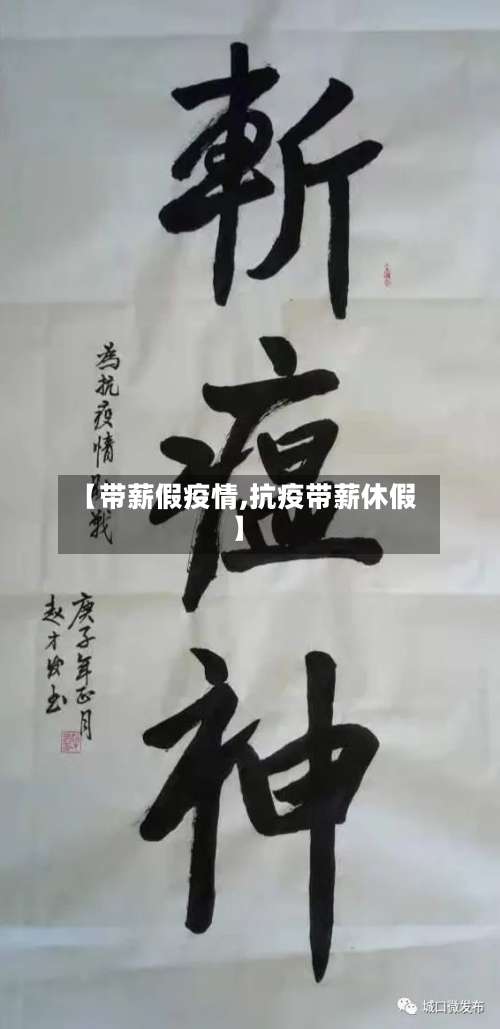 斬
瘟
神
為抗疫情
戰
庚子年正月
趙才
书
【带薪假疫情,抗疫带薪休假
】
城口微发布